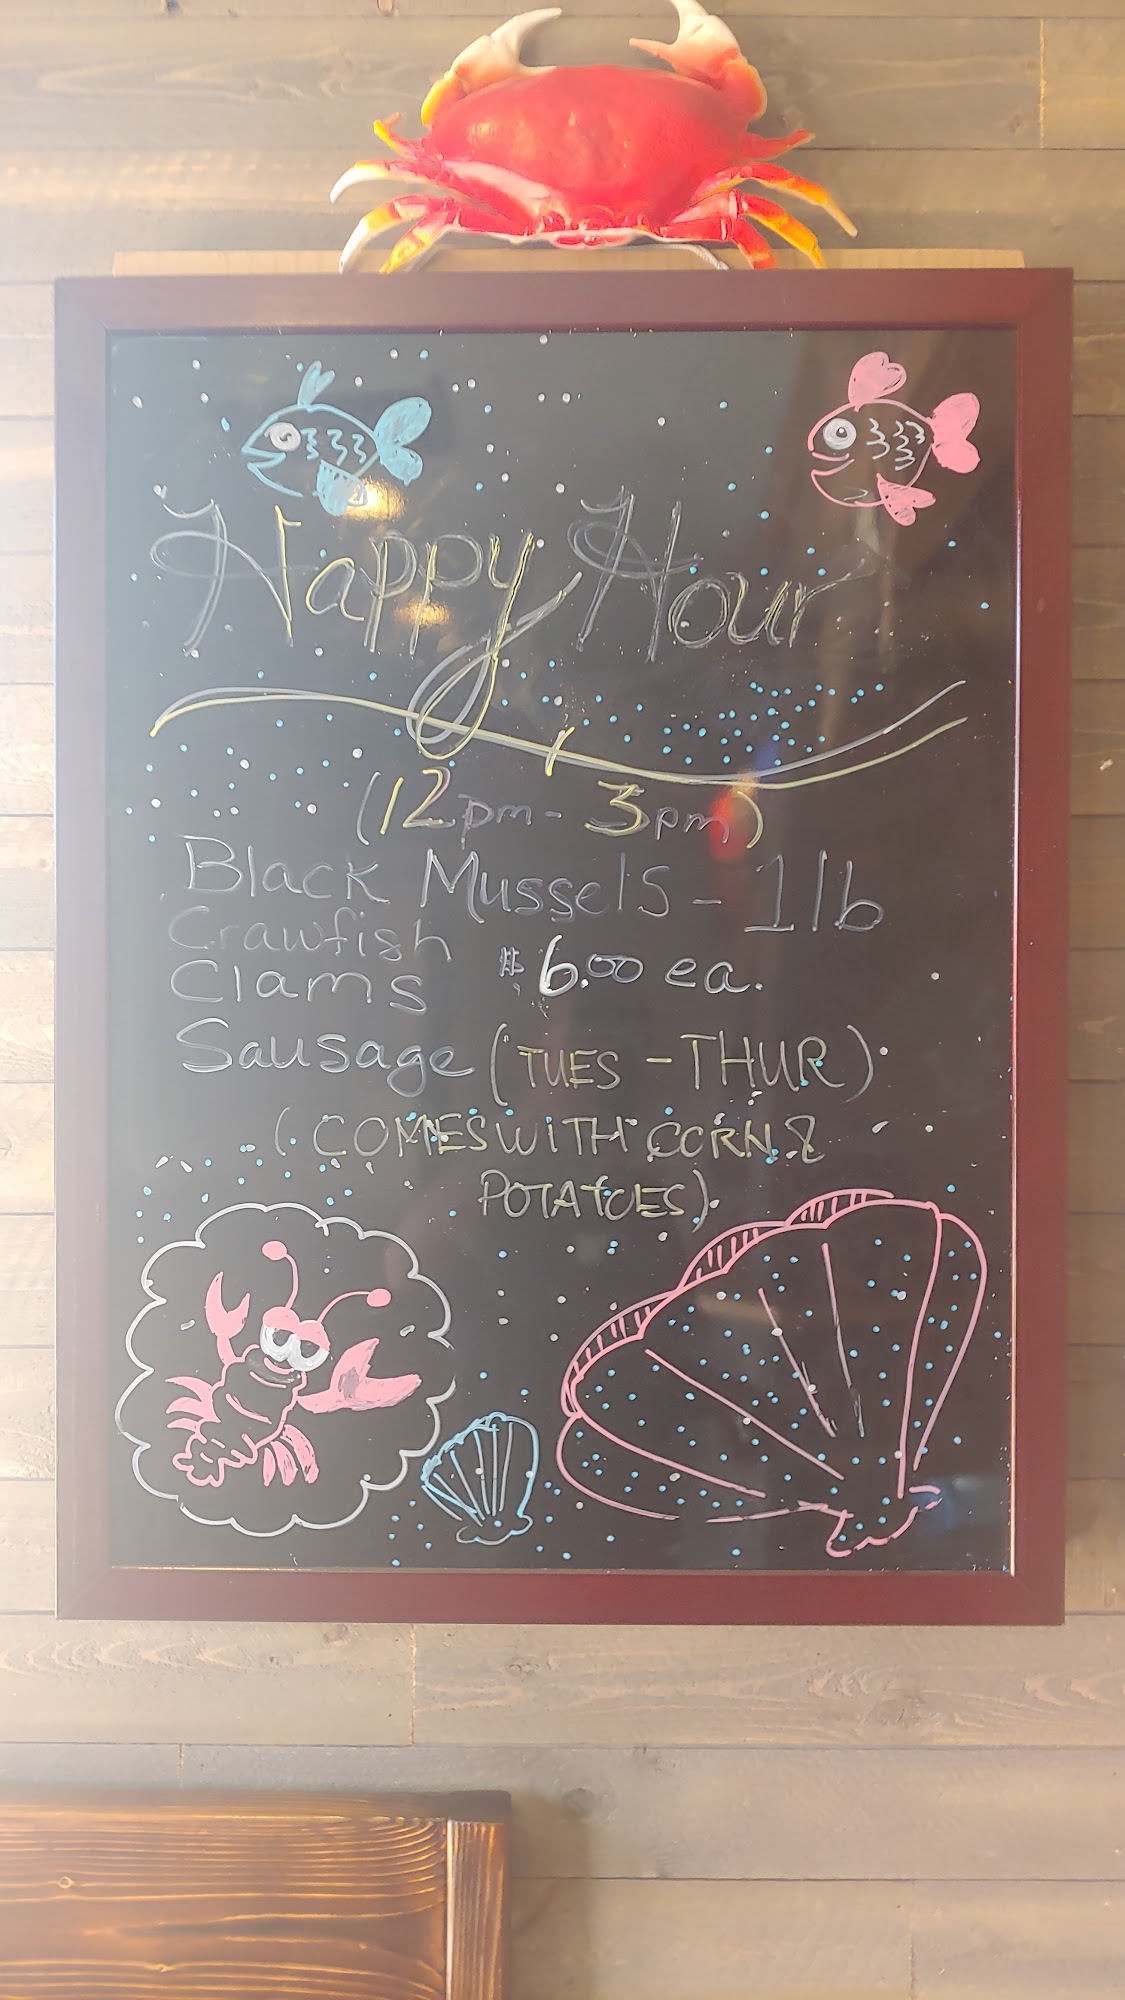 Happy Hour
(12pm - 3pm)
Black Mussels - 1 lb
Crawfish
Clams $6.00 ea.
Sausage (TUES - THUR)
(COMES WITH CORN &
POTATOES)